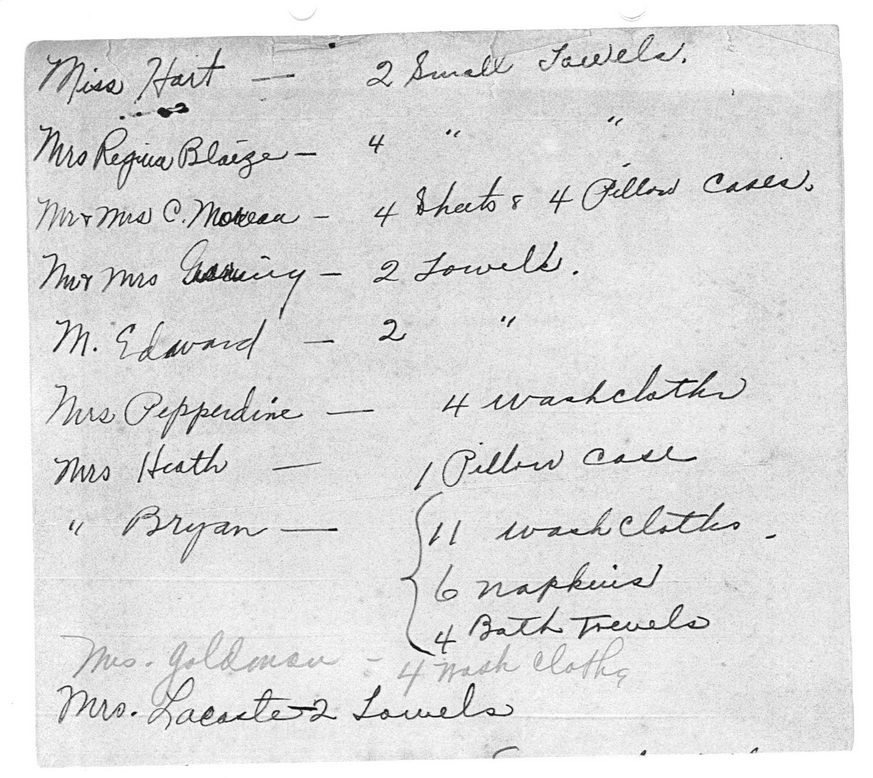 Miss Hart — 2 Small Towels.
Mrs Regina Blaize — 4 " "
Mr & Mrs C. Moreau — 4 Sheets & 4 Pillow Cases.
Mr & Mrs — 2 Towels.
M. Edward — 2 "
Mrs Pepperdine — 4 washcloths
Mrs Heath — 1 Pillow case
" Bryan — 11 wash cloths -
6 napkins
4 Bath Towels
Mrs. Goldman - 4 wash cloths
Mrs. Lacoste - 2 Towels